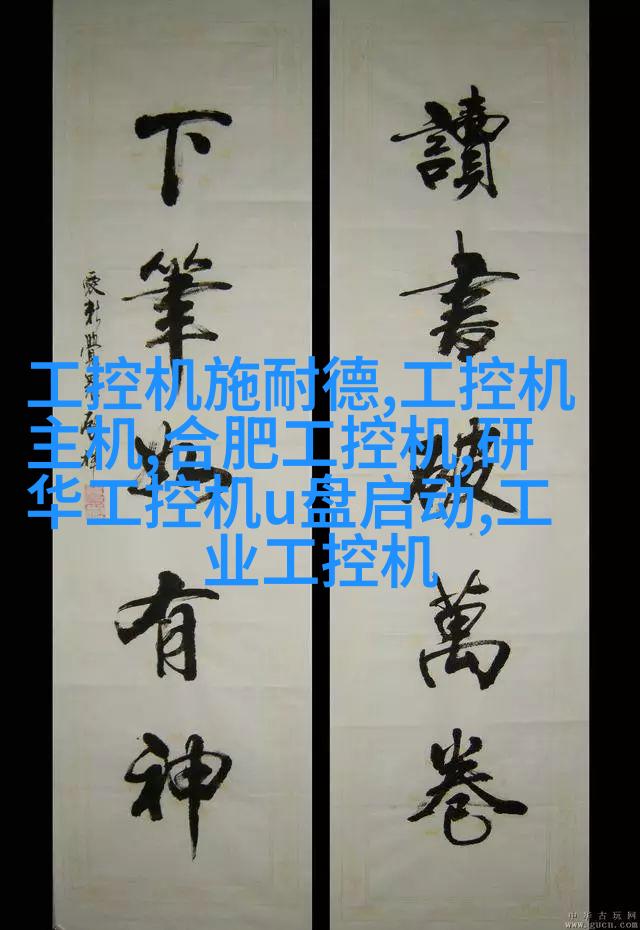 讀書破萬卷
下筆如有神
工控机施耐德,工控机
主机,合肥工控机,研
华工控机u盘启动,工
业工控机
中华古玩网
www.gucn.com